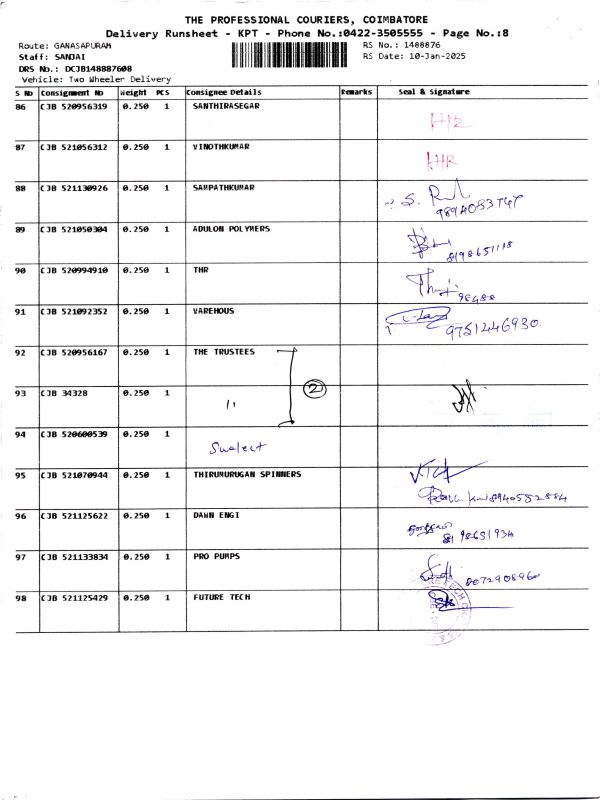 THE PROFESSIONAL COURIERS, COIMBATORE
Delivery Runsheet - KPT - Phone No.:0422-3505555 - Page No.:8
Route: GANASAPURAM RS No.: 1488876
Staff: SANJAI RS Date: 10-Jan-2025
DRS No.: DCJB148887608
Vehicle: Two Wheeler Delivery
S No Consignment No Weight PCS Consignee Details Remarks Seal & Signature
86 CJB 520956319 0.250 1 SANTHIRASEGAR
87 CJB 521056312 0.250 1 VINOTHKUMAR
88 CJB 521130926 0.250 1 SAMPATHKUMAR
9894083747
89 CJB 521050304 0.250 1 ADULON POLYMERS
8198651118
90 CJB 520994910 0.250 1 THR
98488
91 CJB 521092352 0.250 1 VAREHOUS
9751446930
92 CJB 520956167 0.250 1 THE TRUSTEES
93 CJB 34328 0.250 1 " 2
94 CJB 520600539 0.250 1
Swelect
95 CJB 521070944 0.250 1 THIRUMURUGAN SPINNERS
8940552884
96 CJB 521125622 0.250 1 DAWN ENGI
97 CJB 521133834 0.250 1 PRO PUMPS
8072908960
98 CJB 521125429 0.250 1 FUTURE TECH